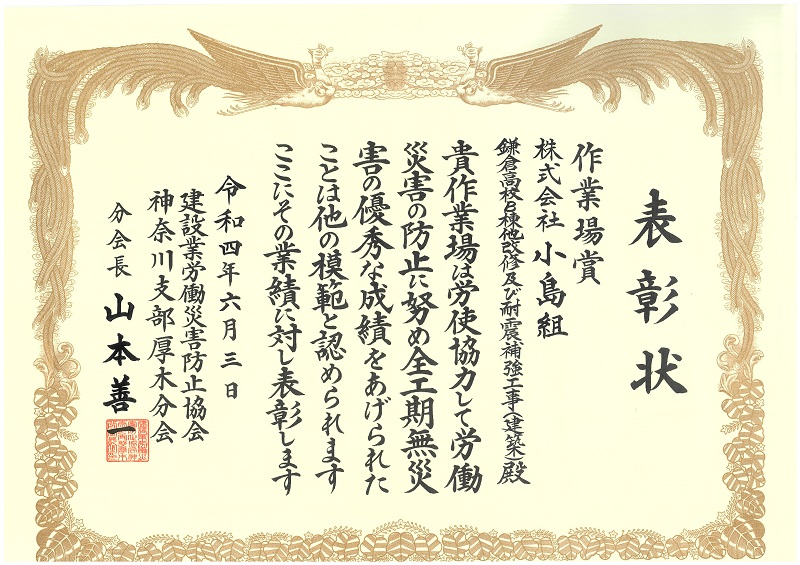 表彰状
作業場賞
株式会社 小島組
鎌倉高校B棟他改修及び耐震補強工事(建築)殿
貴作業場は労使協力して労働
災害の防止に努め全工期無災
害の優秀な成績をあげられた
ことは他の模範と認められます
ここにその業績に対し表彰します
令和四年六月三日
建設業労働災害防止協会
神奈川支部厚木分会
分会長 山本善一